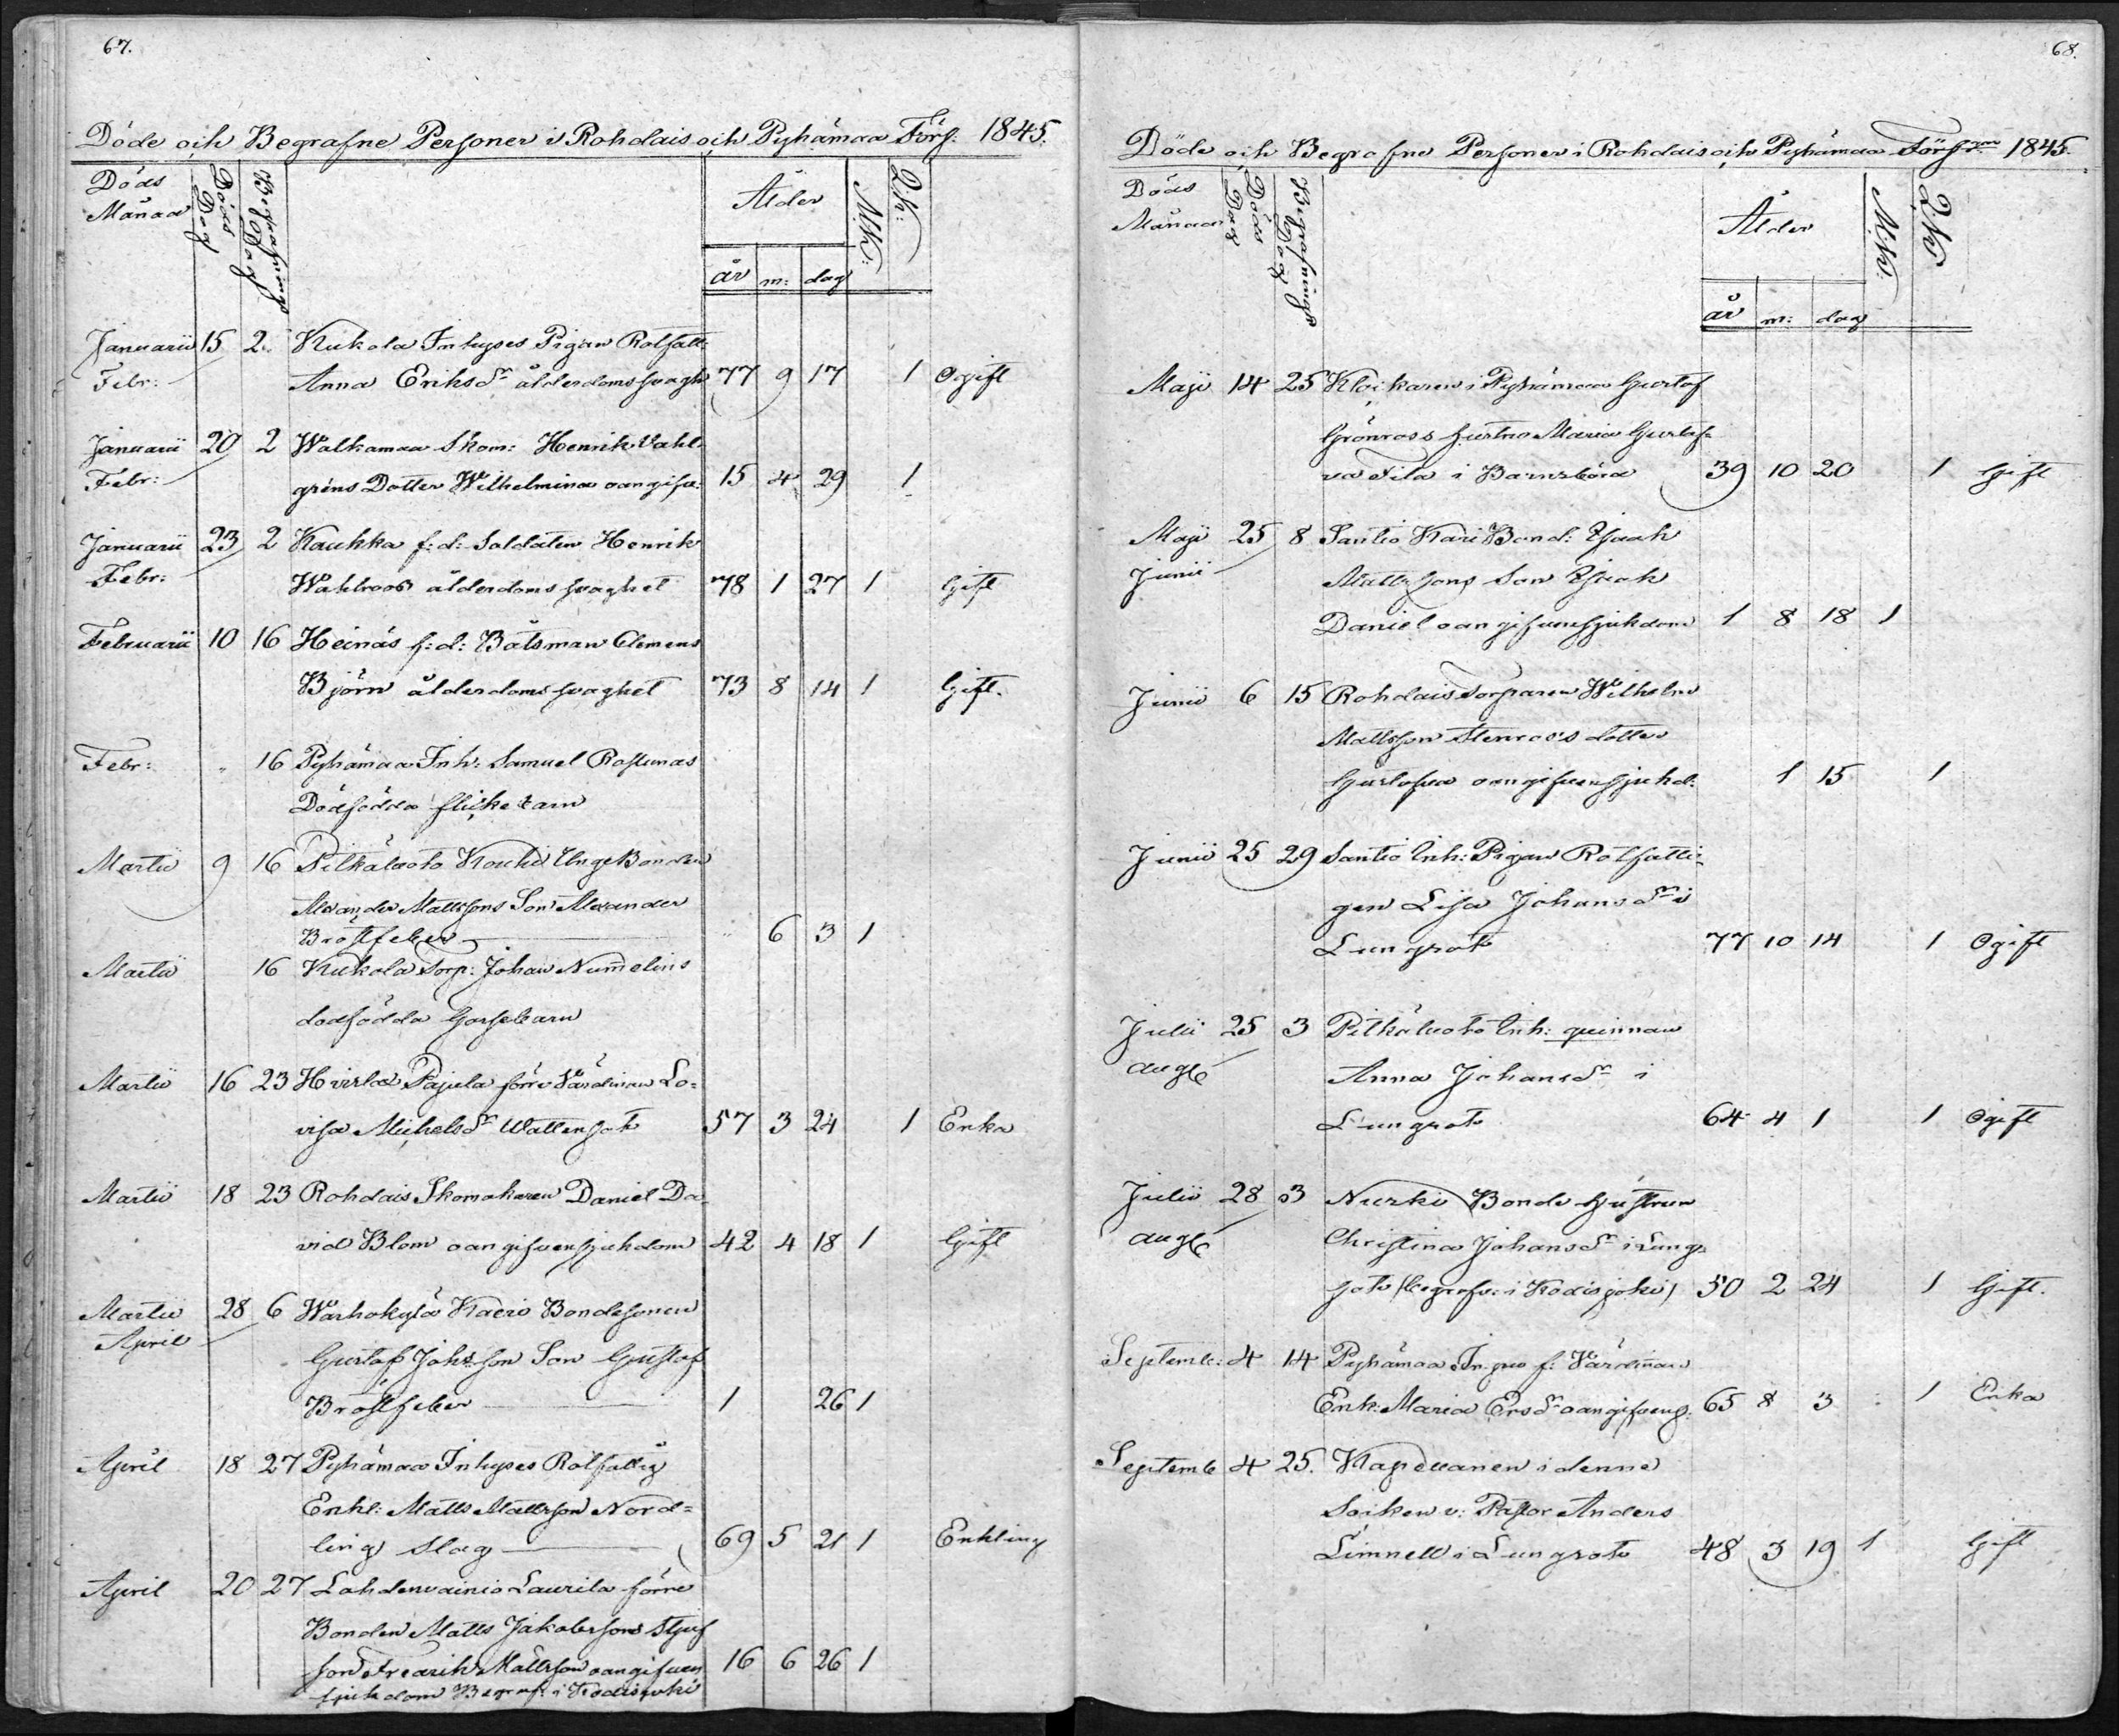 67.
Döde och Begrafne Personer i Rohdais och Pyhämaa Förs: 1845.
Döds Månad
Döds Dag
Begrafnings Dag
Ålder
år m: dag
M.K:
Q.K:
Januarii 15 2. Kukola Inhyses Pigan Rotfatt:
Febr: Anna Eriksdr ålderdomssvagh 77 9 17 1 Ogift
Januarii 20 2 Walkamaa Skom: Henrik Vahl-
Febr: gréns Dotter Wilhelmina oangifv: 15 4 29 1
Januarii 23 2 Kaukka f: d: Soldaten Henrik
Febr: Wahlroos ålderdomssvaghet 78 1 27 1 Gift
Februarii 10 16 Heinäs f: d: Båtsman Clemens
Björn ålderdomssvaghet 73 8 14 1 Gift.
Febr: " 16 Pyhämaa Inh: Samuel Rostunas
Dödfödda flickebarn
Martii 9 16 Pitkäluoto Kouhi Unge Bonden
Alexander Mattssons Son Alexander
Bröstfeber " 6 3 1
Martii 16 Kukola Torp: Johan Numelins
dödfödda Gossebarn
Martii 16 23 Hvirla Pajula förre Värdinnan Lo=
visa Michelsdr Wattensot 57 3 24 1 Enka
Martii 18 23 Rohdais Skomakaren Daniel Da-
vid Blom oangifven sjukdom 42 4 18 1 Gift
Martii 28 6 Warhokylä Kaeri Bondesonen
April Gustaf Johsson Son Gustaf
Bröstfeber 1 26 1
April 18 27 Pyhämaa Inhyses Rotfattig
Enkl: Matts Mattsson Nord=
ling Slag 69 5 21 1 Enkling
April 20 27 Lahdenvainio Laurila förre
Bonden Matts Jakobssons Styf
son Fredrik Mattsson oangifven 16 6 26 1
sjukdom Begraf: i Kodisjoki
68.
Döde och Begrafne Personer i Rohdais och Pyhämaa Förs:rne 1845.
Döds Månad
Döds Dag
Begrafnings Dag
Ålder
år m: dag
M.K:
Q.K
Maji 14 25 Klockaren i Pyhämaa Gustaf
Grönross hustru Maria Gustaf=
va Fila i Barnsbörd 39 10 20 1 Gift
Maji 25 8 Santio Kari Bond: Isaak
Junii Mattssons Son Isaak
Daniel oangifven sjukdom 1 8 18 1
Junii 6 15 Rohdais Torparen Wilhelm
Mattsson Stenroos dotter
Gustafva oangifven sjukd: 1 15 1
Junii 25 29 Santio Inh: Pigan Rotfatti-
gen Lisa Johansdr i
Lungsot 77 10 14 1 Ogift
Julii 25 3 Pitkäluoto Inh: quinnan
Aug: Anna Johansdr i
Lungsot 64 4 1 1 Ogift
Julii 28 3 Nurki Bonde Hustrun
Aug: Christina Johansdr i Lung-
sot (begrafv: i Kodisjoki) 50 2 24 1 Gift.
Septemb: 4 14 Pyhämaa f: Värdinnan
Enk: Maria Ersdr oangifven s: 65 8 3 1 Enka
Septemb 4 25. Kapellanen i denna
Socken v: Pastor Anders
Limnell i Lungsot 48 3 19 1 Gift